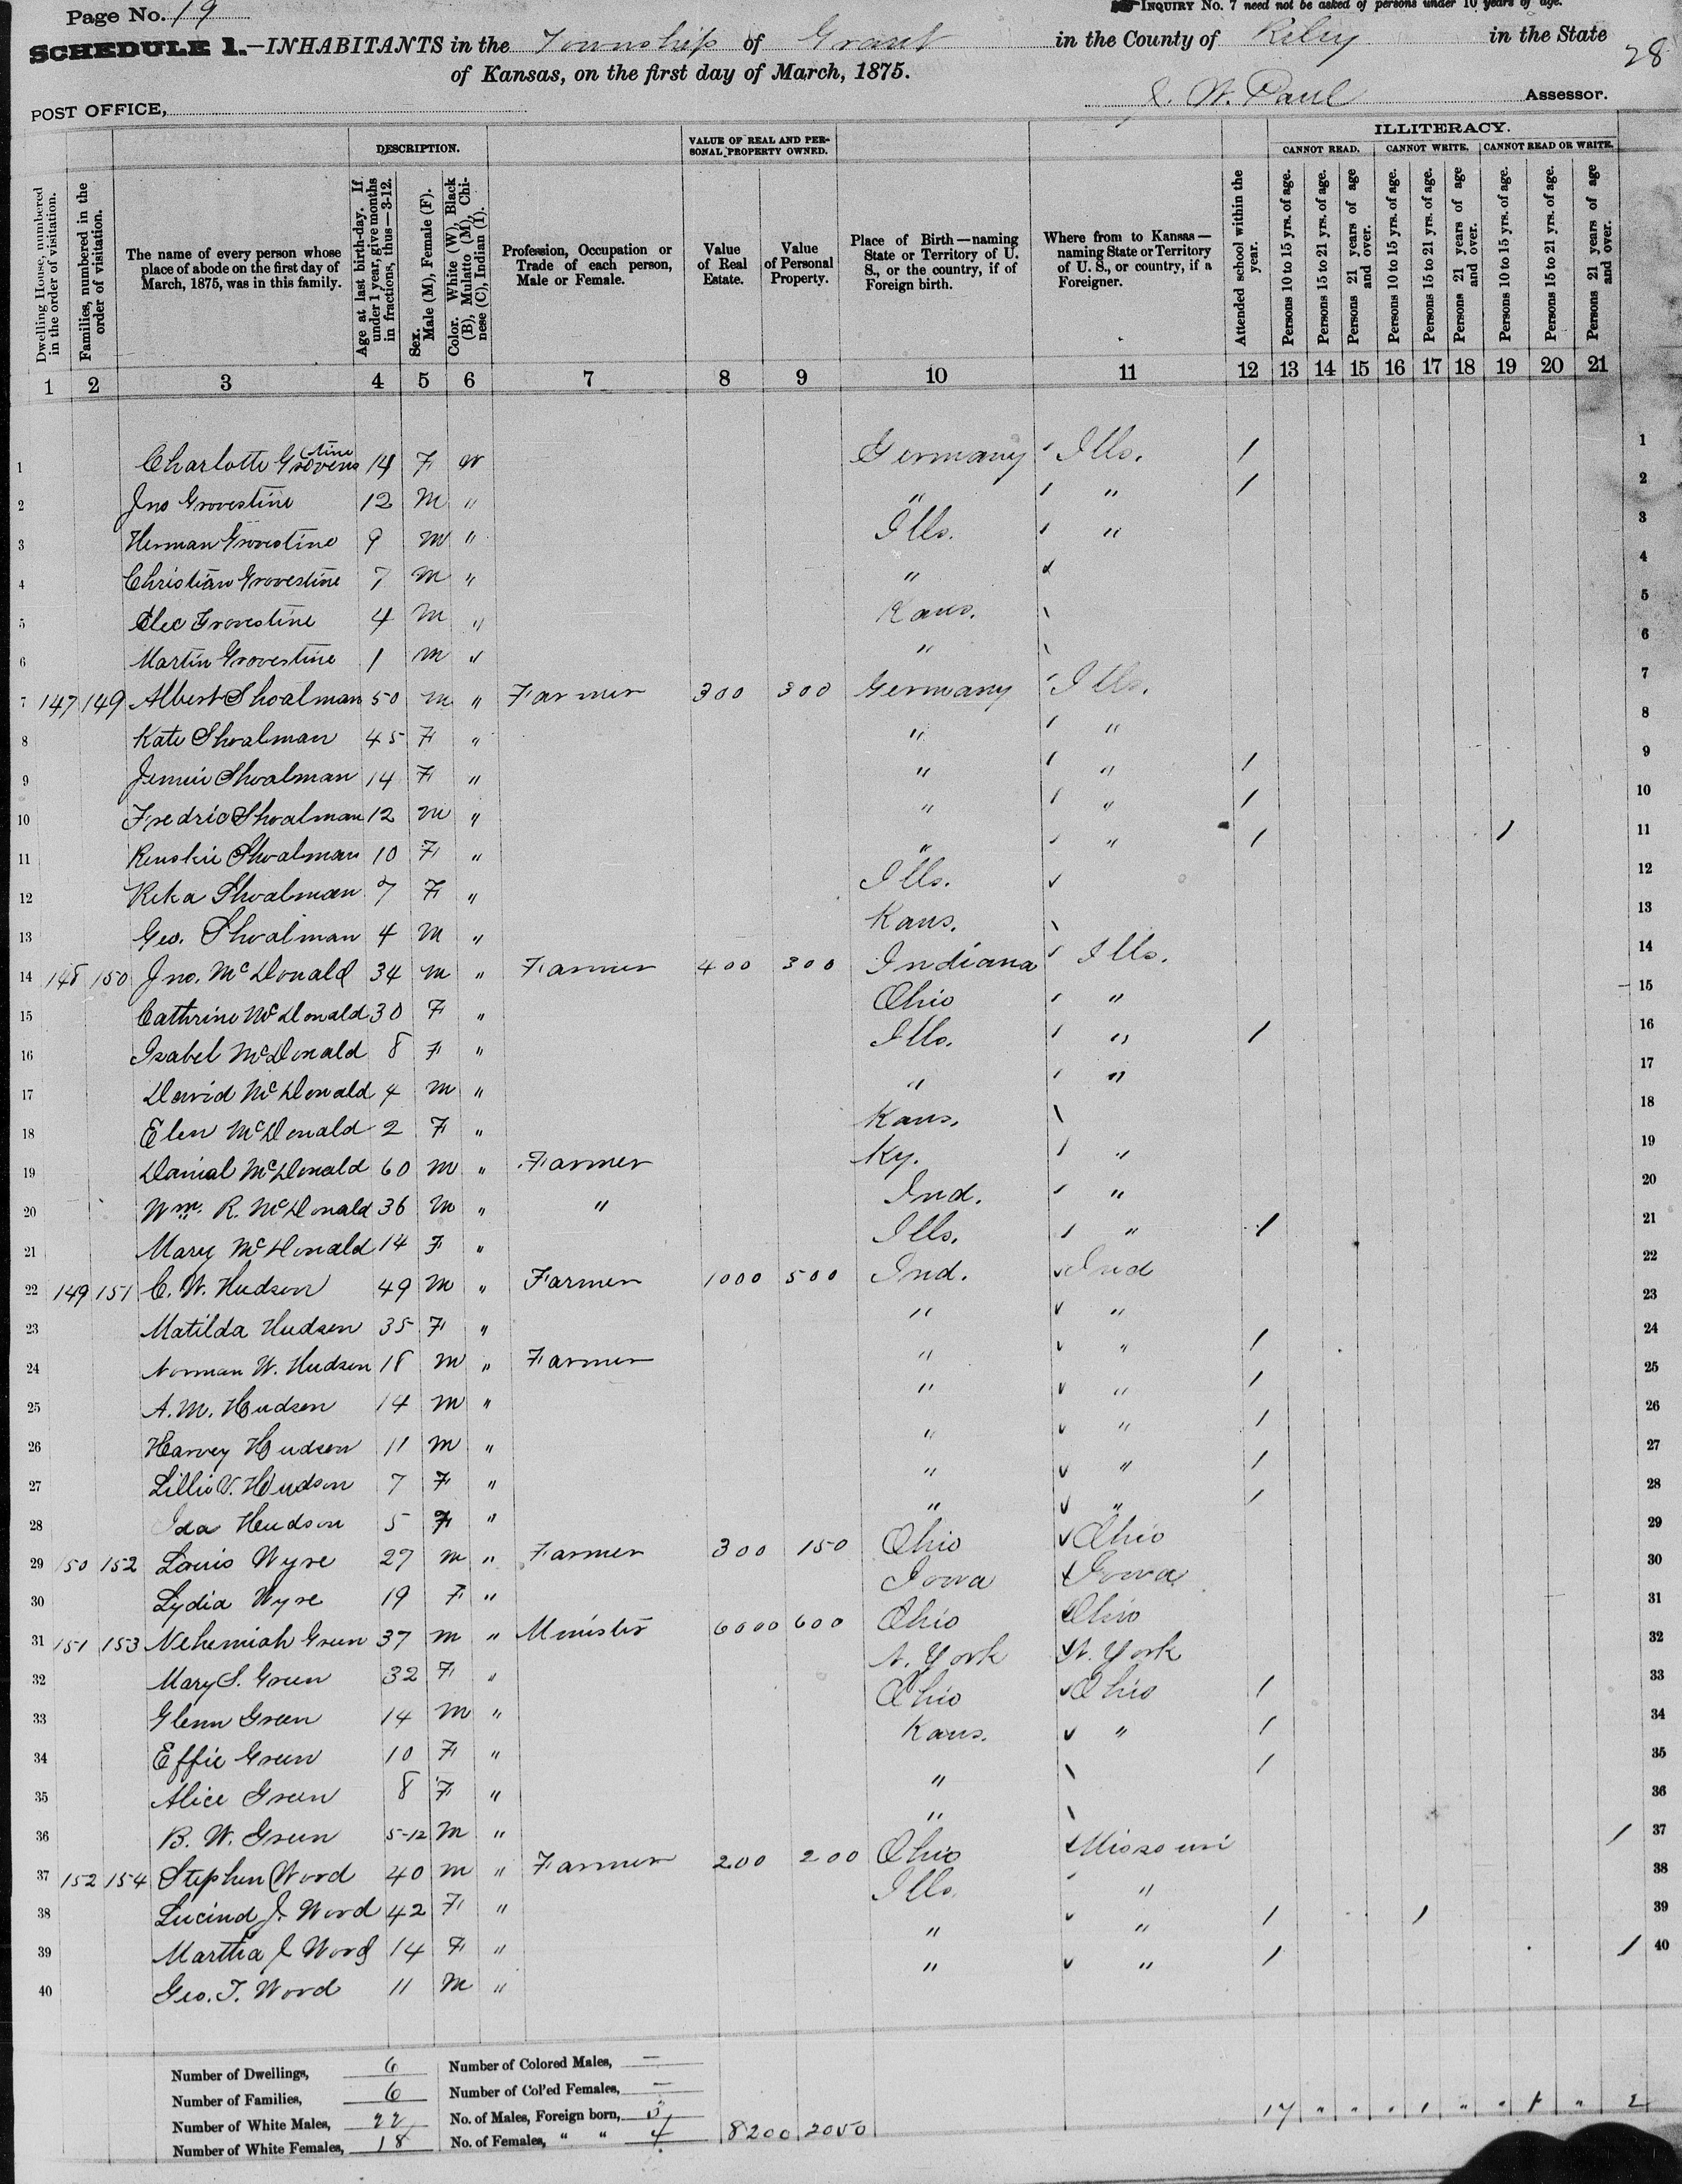 Page No. 19
INQUIRY No. 7 need not be asked of persons under 10 years of age.
SCHEDULE 1.—INHABITANTS in the Township of Grant in the County of Riley in the State
28
of Kansas, on the first day of March, 1875.
POST OFFICE, J. W. Paul Assessor.
DESCRIPTION. VALUE OF REAL AND PERSONAL PROPERTY OWNED. ILLITERACY.
CANNOT READ. CANNOT WRITE. CANNOT READ OR WRITE.
Dwelling House, numbered in the order of visitation.
Families, numbered in the order of visitation.
The name of every person whose place of abode on the first day of March, 1875, was in this family.
Age at last birth-day. If under 1 year, give months in fractions, thus—3-12.
Sex. Male (M), Female (F).
Color. White (W), Black (B), Mulatto (M), Chinese (C), Indian (I).
Profession, Occupation or Trade of each person, Male or Female.
Value of Real Estate.
Value of Personal Property.
Place of Birth—naming State or Territory of U. S., or the country, if of Foreign birth.
Where from to Kansas—naming State or Territory of U. S., or country, if a Foreigner.
Attended school within the year.
Persons 10 to 15 yrs. of age.
Persons 15 to 21 yrs. of age.
Persons 21 years of age and over.
Persons 10 to 15 yrs. of age.
Persons 15 to 21 yrs. of age.
Persons 21 years of age and over.
Persons 10 to 15 yrs. of age.
Persons 15 to 21 yrs. of age.
Persons 21 years of age and over.
1 2 3 4 5 6 7 8 9 10 11 12 13 14 15 16 17 18 19 20 21
1 Charlotte Grovenstine 14 F W Germany Ills. / 1
2 Jno Grovestine 12 M " " " / 2
3 Herman Grovestine 9 M " Ills. " 3
4 Christian Grovestine 7 M " " 4
5 Alec Grovestine 4 M " Kans. 5
6 Martin Grovestine 1 M " " 6
7 147 149 Albert Shoalman 50 M " Farmer 300 300 Germany Ills. 7
8 Kate Shoalman 45 F " " " 8
9 Jennie Shoalman 14 F " " " / 9
10 Fredric Shoalman 12 M " " " / 10
11 Renskie Shoalman 10 F " " " / / 11
12 Reka Shoalman 7 F " Ills. 12
13 Geo. Shoalman 4 M " Kans. 13
14 148 150 Jno. McDonald 34 M " Farmer 400 300 Indiana Ills. 14
15 Cathrine McDonald 30 F " Ohio " 15
16 Isabel McDonald 8 F " Ills. " / 16
17 David McDonald 4 M " " " 17
18 Elen McDonald 2 F " Kans. 18
19 Danial McDonald 60 M " Farmer Ky. " 19
20 Wm. R. McDonald 36 M " " Ind. " 20
21 Mary McDonald 14 F " Ills. " / 21
22 149 151 C. W. Hudson 49 M " Farmer 1000 500 Ind. Ind 22
23 Matilda Hudson 35 F " " " 23
24 Norman W. Hudson 18 M " Farmer " " / 24
25 A. M. Hudson 14 M " " " / 25
26 Harvey Hudson 11 M " " " / 26
27 Lillie V. Hudson 7 F " " " / 27
28 Ida Hudson 5 F " " " / 28
29 150 152 Louis Wyre 27 M " Farmer 300 150 Ohio Ohio 29
30 Lydia Wyre 19 F " Iowa Iowa 30
31 151 153 Nehemiah Green 37 M " Minister 6000 600 Ohio Ohio 31
32 Mary S. Green 32 F " N. York N. York 32
33 Glenn Green 14 M " Ohio Ohio / 33
34 Effie Green 10 F " Kans. " / 34
35 Alice Green 8 F " " / 35
36 B. W. Green 5-12 M " " 36
37 152 154 Stephen Word 40 M " Farmer 200 200 Ohio Missouri / 37
38 Lucind J. Word 42 F " Ills. " 38
39 Martha J Word 14 F " " " / / 39
40 Geo. T. Word 11 M " " " / / 40
Number of Dwellings, 6 Number of Colored Males, —
Number of Families, 6 Number of Col'ed Females, —
Number of White Males, 22 No. of Males, Foreign born, 3
Number of White Females, 18 No. of Females, " " 4 8200 2050 17 " " " 1 " " 1 " 2